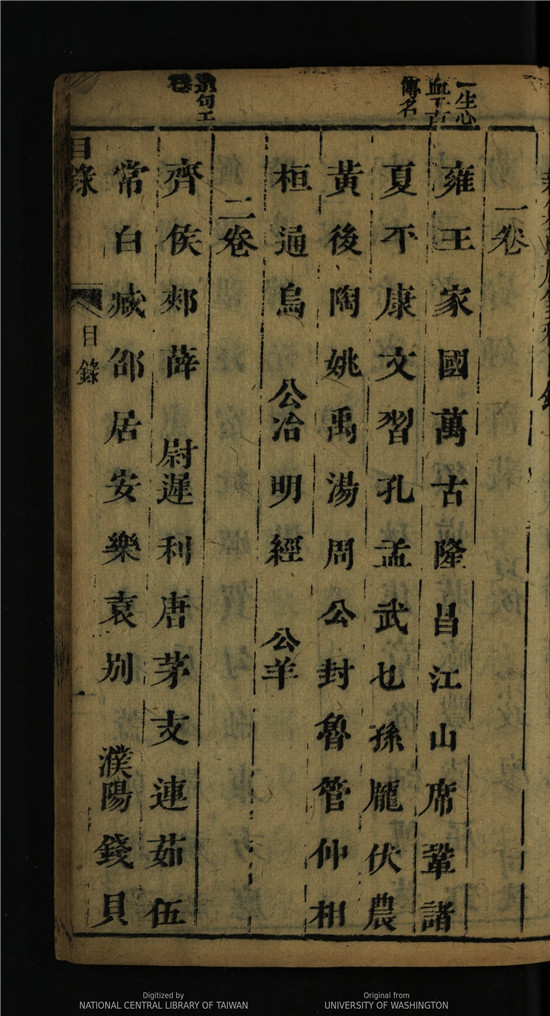 一生心
血千古
傳名
一卷
雍王家國萬古隆昌江山席鞏諸
夏平康文習孔孟武乜孫龐伏農
黃後陶姚禹湯周公封魯管仲相
桓通烏公冶明經公羊
二卷
齊侯郟薛尉遲利唐茅支連茹伍
常白臧郃居安樂袁別濮陽錢貝
目錄
目錄
一
Digitized by
NATIONAL CENTRAL LIBRARY OF TAIWAN
Original from
UNIVERSITY OF WASHINGTON